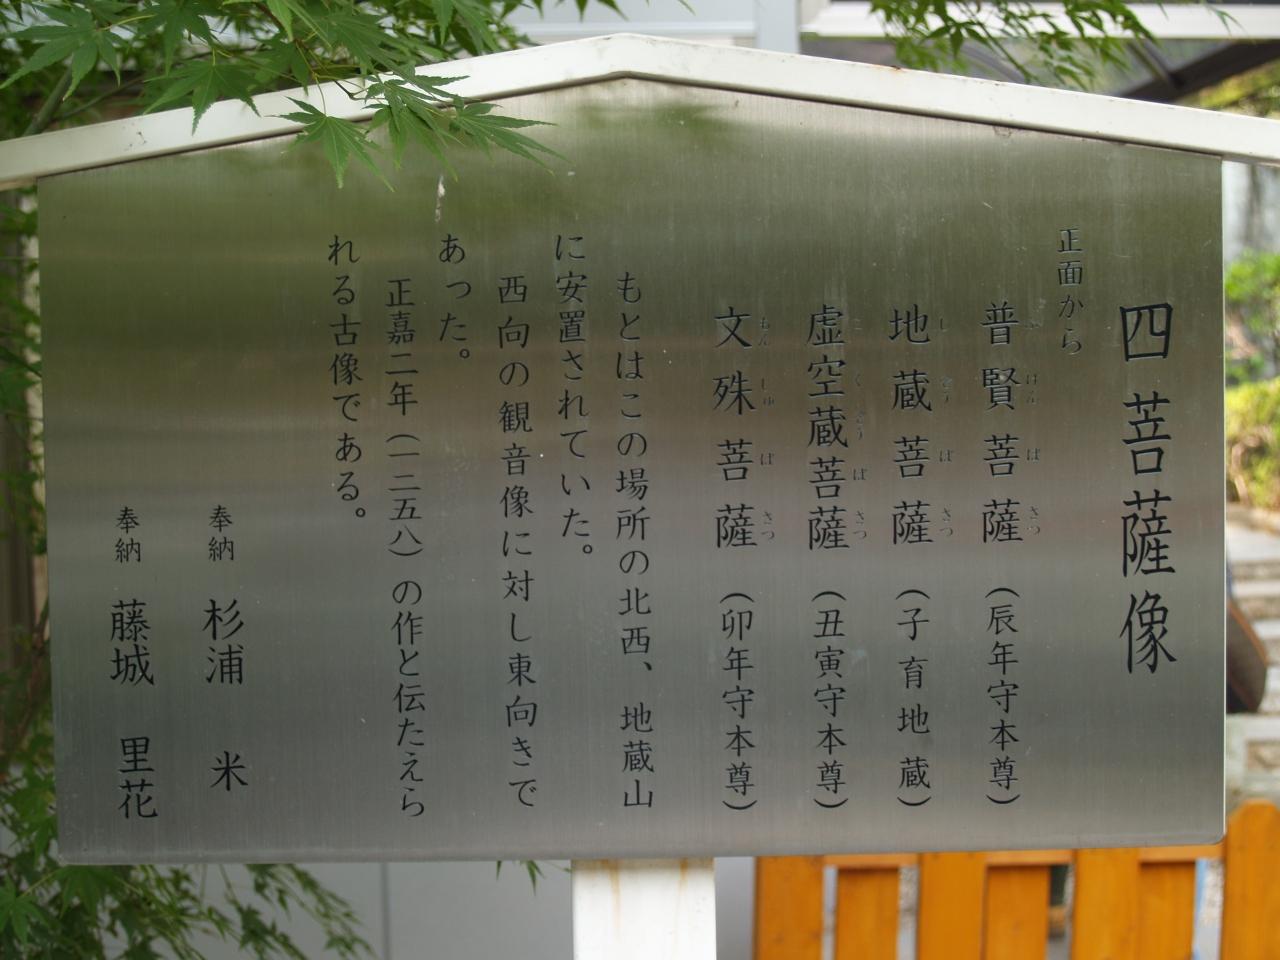 四菩薩像
正面から
普賢菩薩（辰年守本尊）
ふげんぼさつ
地蔵菩薩（子育地蔵）
じぞうぼさつ
虚空蔵菩薩（丑寅守本尊）
こくぞうぼさつ
文殊菩薩（卯年守本尊）
もんじゅぼさつ
もとはこの場所の北西、地蔵山
に安置されていた。
西向の観音像に対し東向きで
あった。
正嘉二年（一二五八）の作と伝えら
れる古像である。
奉納 杉浦 米
奉納 藤城 里花